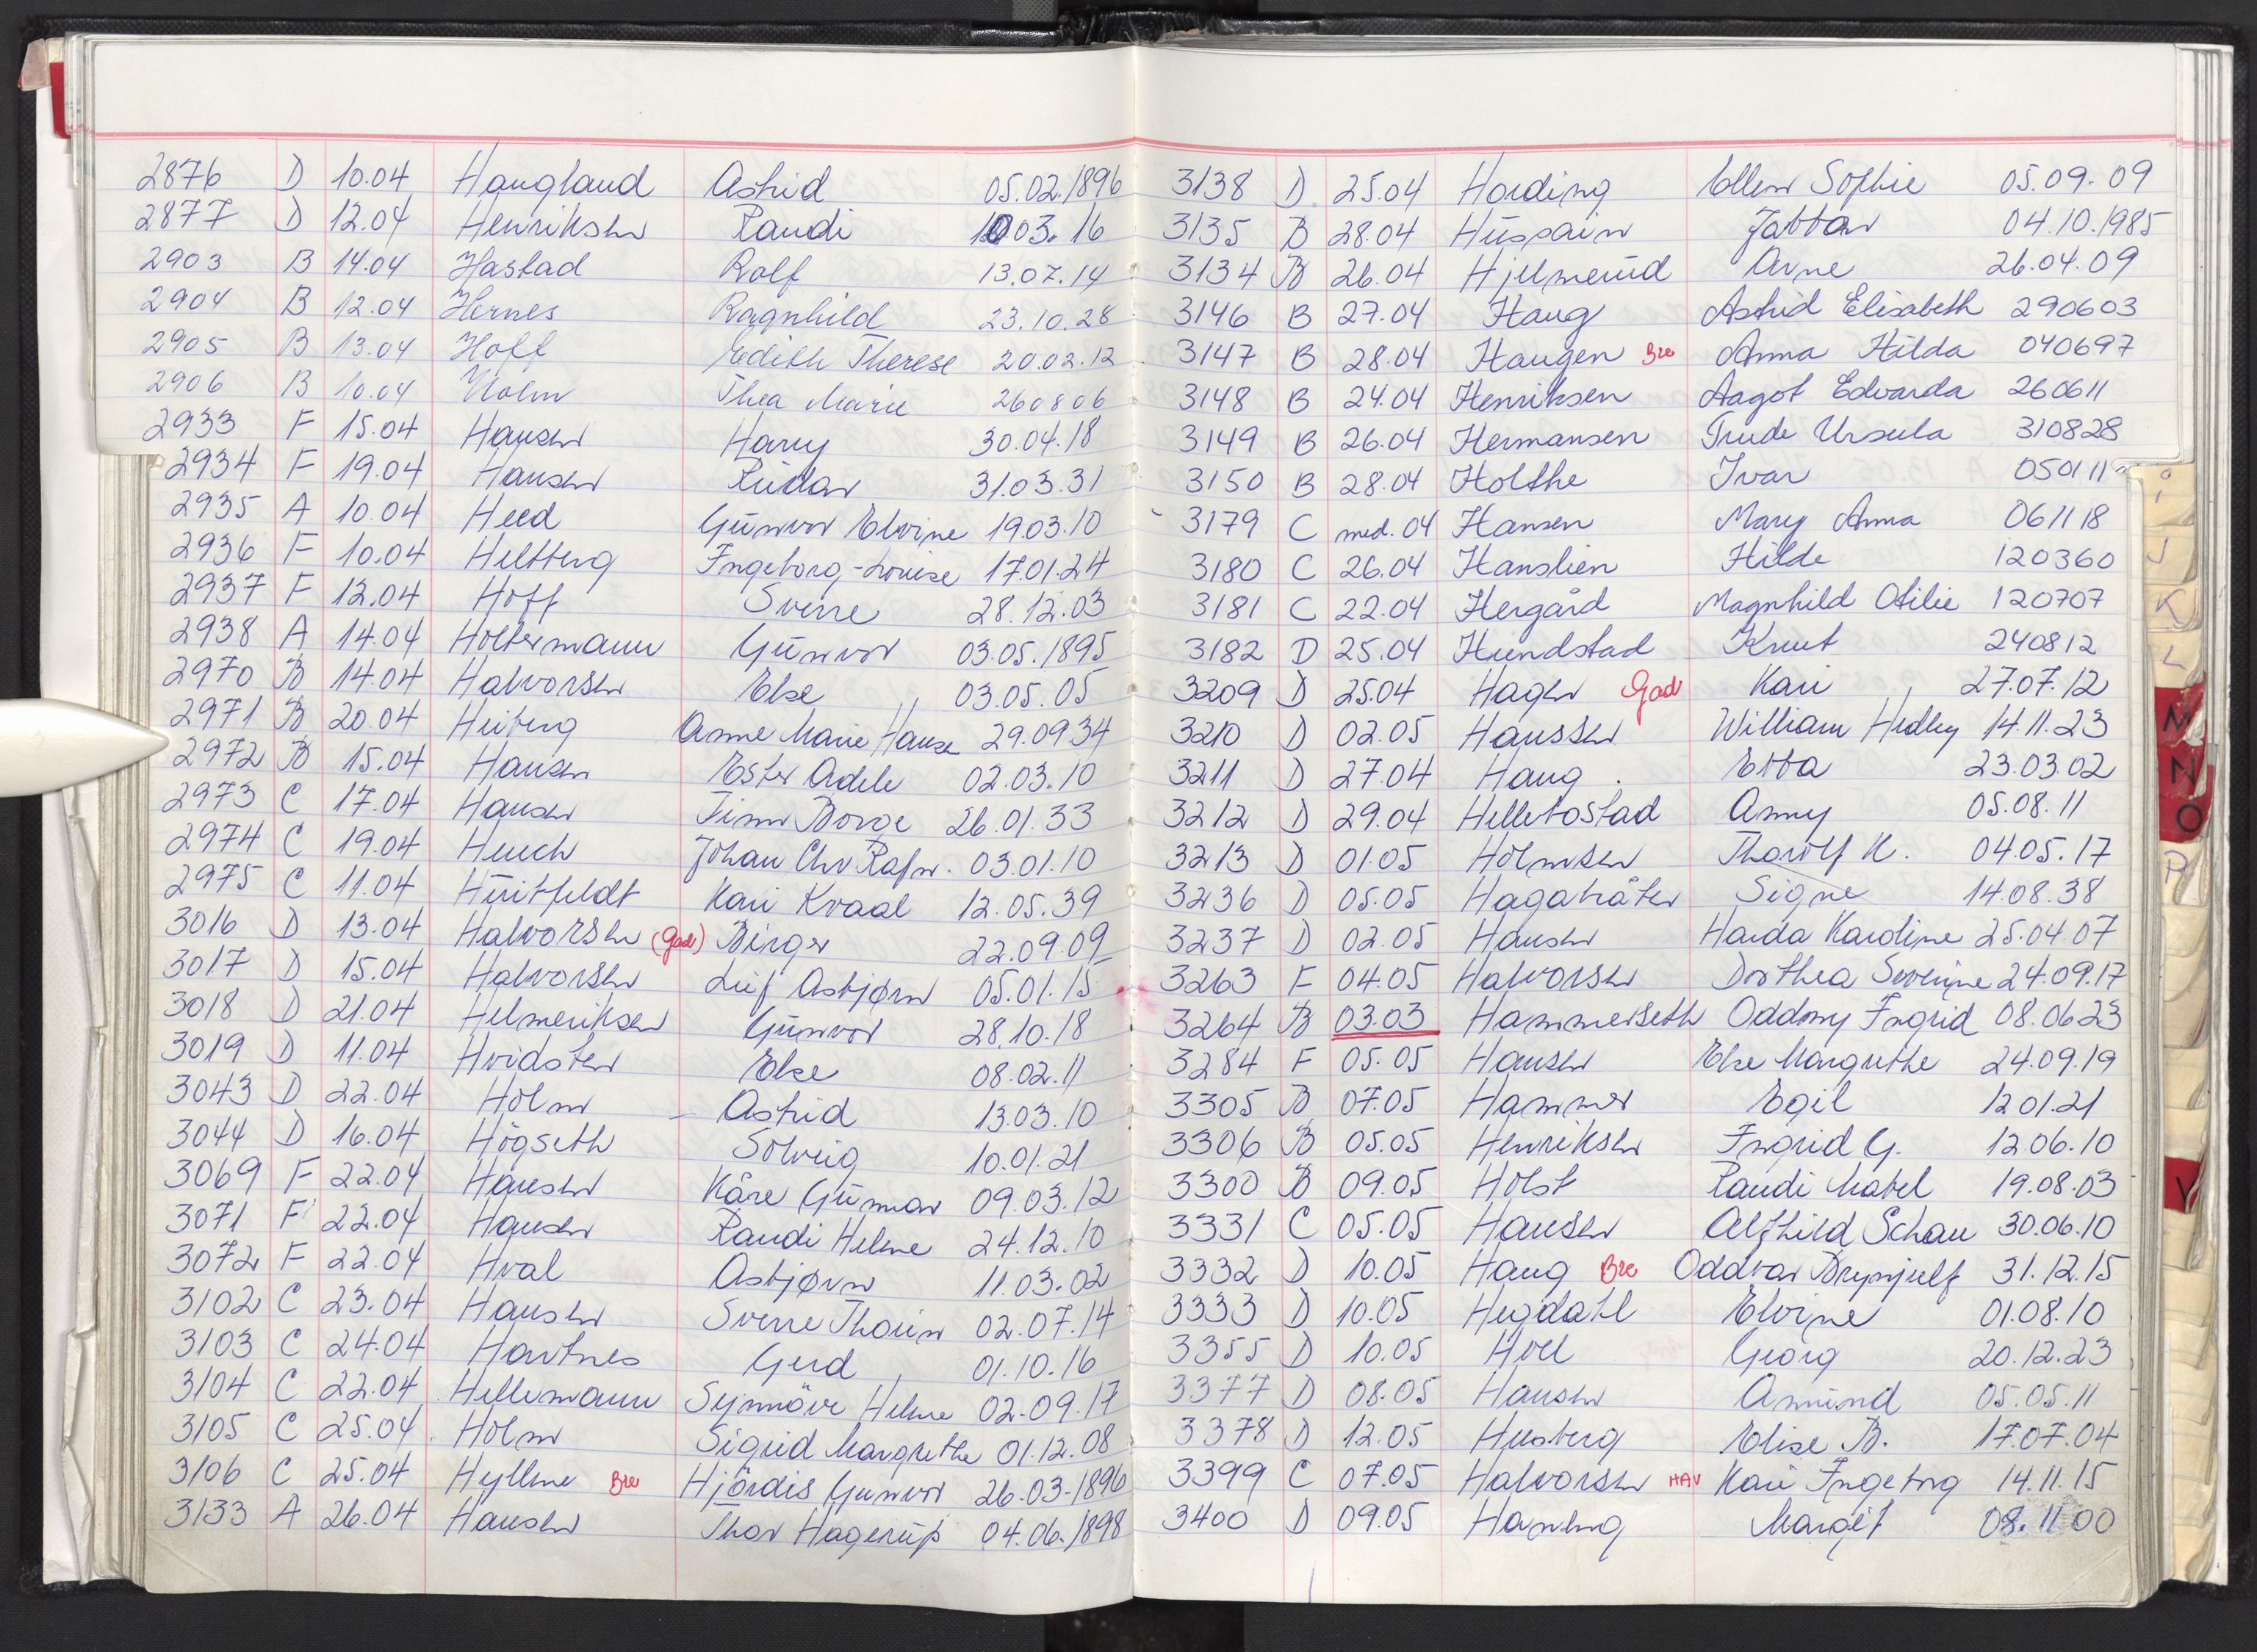 2876 D 10.04 Haugland Astrid 05.02.1896
2877 D 12.04 Henriksen Randi 1003.16
2903 B 14.04 Hastad Rolf 13.07.14
2904 B 12.04 Hernes Ragnhild 23.10.28
2905 B 13.04 Hoff Edith Therese 20.02.12
2906 B 10.04 Holm Thea Marie 260806
2933 F 15.04 Hansen Harry 30.04.18
2934 F 19.04 Hansen Reidar 31.03.31
2935 A 10.04 Heed Gunvor Elvine 19.03.10
2936 F 10.04 Heltberg Ingeborg-Louise 17.01.24
2937 F 12.04 Hoff Sverre 28.12.03
2938 A 14.04 Holtermann Gunvor 03.05.1895
2970 B 14.04 Halvorsen Else 03.05.05
2971 B 20.04 Heiberg Anne Marie Hause 29.0934
2972 B 15.04 Hansen Ester Adele 02.03.10
2973 C 17.04 Hansen Finn Borge 26.01.33
2974 C 19.04 Heuch Johan Chr Rafn. 03.01.10
2975 C 11.04 Huitfeldt Kari Kvaal 12.05.39
3016 D 13.04 Halvorsen (Gad) Birger 22.09.09
3017 D 15.04 Halvorsen Leif Asbjørn 05.01.15
3018 D 21.04 Helmeriksen Gunvor 28.10.18
3019 D 11.04 Hvidsten Else 08.02.11
3043 D 22.04 Holm Astrid 13.03.10
3044 D 16.04 Högseth Solveig 10.01.21
3069 F 22.04 Hansen Kåre Gunnar 09.03.12
3071 F 22.04 Hansen Randi Helene 24.12.10
3072 F 22.04 Hval Asbjørn 11.03.02
3102 C 23.04 Hansen Sverre Thorin 02.07.14
3103 C 24.04 Havtnes Gerd 01.10.16
3104 C 22.04 Hellemann Synnöve Helene 02.09.17
3105 C 25.04 Holm Sigrid Margrethe 01.12.08
3106 C 25.04 Hyllene Bre Hjördis Gunvor 26.03.1896
3133 A 26.04 Hansen Thor Hagerup 04.06.1898
3138 D 25.04 Hording Ellen Sophie 05.09.09
3135 B 28.04 Hussain Jabbar 04.10.1985
3134 B 26.04 Hjelmerud Arne 26.04.09
3146 B 27.04 Haug Astrid Elisabeth 290603
3147 B 28.04 Haugen Bre Anna Hilda 040697
3148 B 24.04 Henriksen Aagot Edvarda 260611
3149 B 26.04 Hermansen Trude Ursula 310828
3150 B 28.04 Holthe Ivar 050111
3179 C med. 04 Hansen Mary Anna 061118
3180 C 26.04 Hanslien Hilde 120360
3181 C 22.04 Hergård Magnhild Otilie 120707
3182 D 25.04 Hundstad Knut 240812
3209 D 25.04 Hagen Gad Kari 27.07.12
3210 D 02.05 Hanssen William Hedley 14.11.23
3211 D 27.04 Haug Ebba 23.03.02
3212 D 29.04 Hellebostad Anny 05.08.11
3213 D 01.05 Holmsen Thorolf K. 04.05.17
3236 D 05.05 Hagabråten Signe 14.08.38
3237 D 02.05 Hansen Harda Karoline 25.04.07
3263 F 04.05 Halvorsen Dorthea Sverine 24.09.17
3264 B 03.03 Hammerseth Oddny Ingrid 08.0623
3284 F 05.05 Hansen Else Margrethe 24.09.19
3305 B 07.05 Hammer Egil 12.01.21
3306 B 05.05 Henriksen Ingrid G. 12.06.10
3300 B 09.05 Holst Randi Mabel 19.08.03
3331 C 05.05 Hansen Alfhild Schau 30.06.10
3332 D 10.05 Haug Bre Oddvar Brynjulf 31.12.15
3333 D 10.05 Hegdahl Elvine 01.08.10
3355 D 10.05 Hoel Georg 20.12.23
3377 D 08.05 Hansen Amund 05.05.11
3378 D 12.05 Husberg Elise B. 17.07.04
3399 C 07.05 Halvorsen HAV Kari Ingeborg 14.11.15
3400 D 09.05 Margit 08.11 00
i
J
K
L
M
N
O
P
V